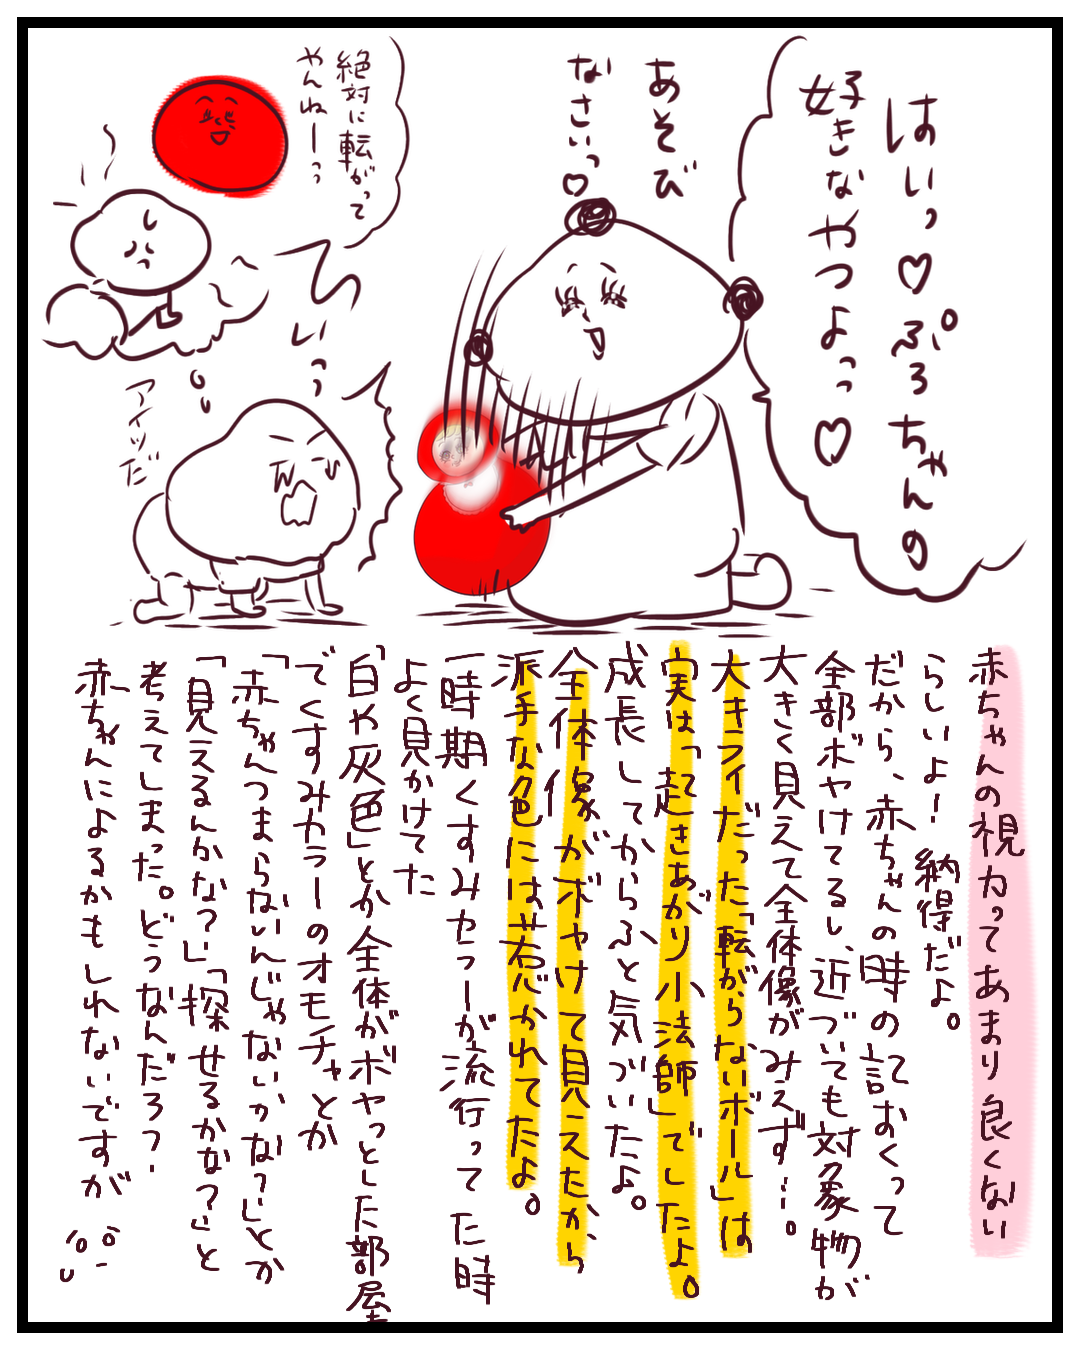 はいっ♡ぷろちゃんの
好きなやつよっっ♡
あそび
なさいっ♡
絶対に転がって
やんねーーっっ
ひ
いっっ
アイツだ
赤ちゃんの視力ってあまり良くない
らしいよー 納得だよ。
だから、赤ちゃんの時の記おくって
全部ボヤけてるし、近づいても対象物が
大きく見えて全体像がみえず…。
大キライだった「転がらないボール」は
実はって起きあがり小法師」でしたよ。
成長してからふと気づいたよ。
全体像がボヤけて見えたから
派手な色には惹かれてたよ。
一時期くすみカラーが流行ってた時
よく見かけてた
「白や灰色」とか全体がボヤっとした部屋
でくすみカラーのオモチャとか
「赤ちゃんつまらないんじゃないかな?」とか
「見えるんかな?」「探せるかな?」と
考えてしまった。どうなんだろ?
赤ちゃんによるかもしれないですが